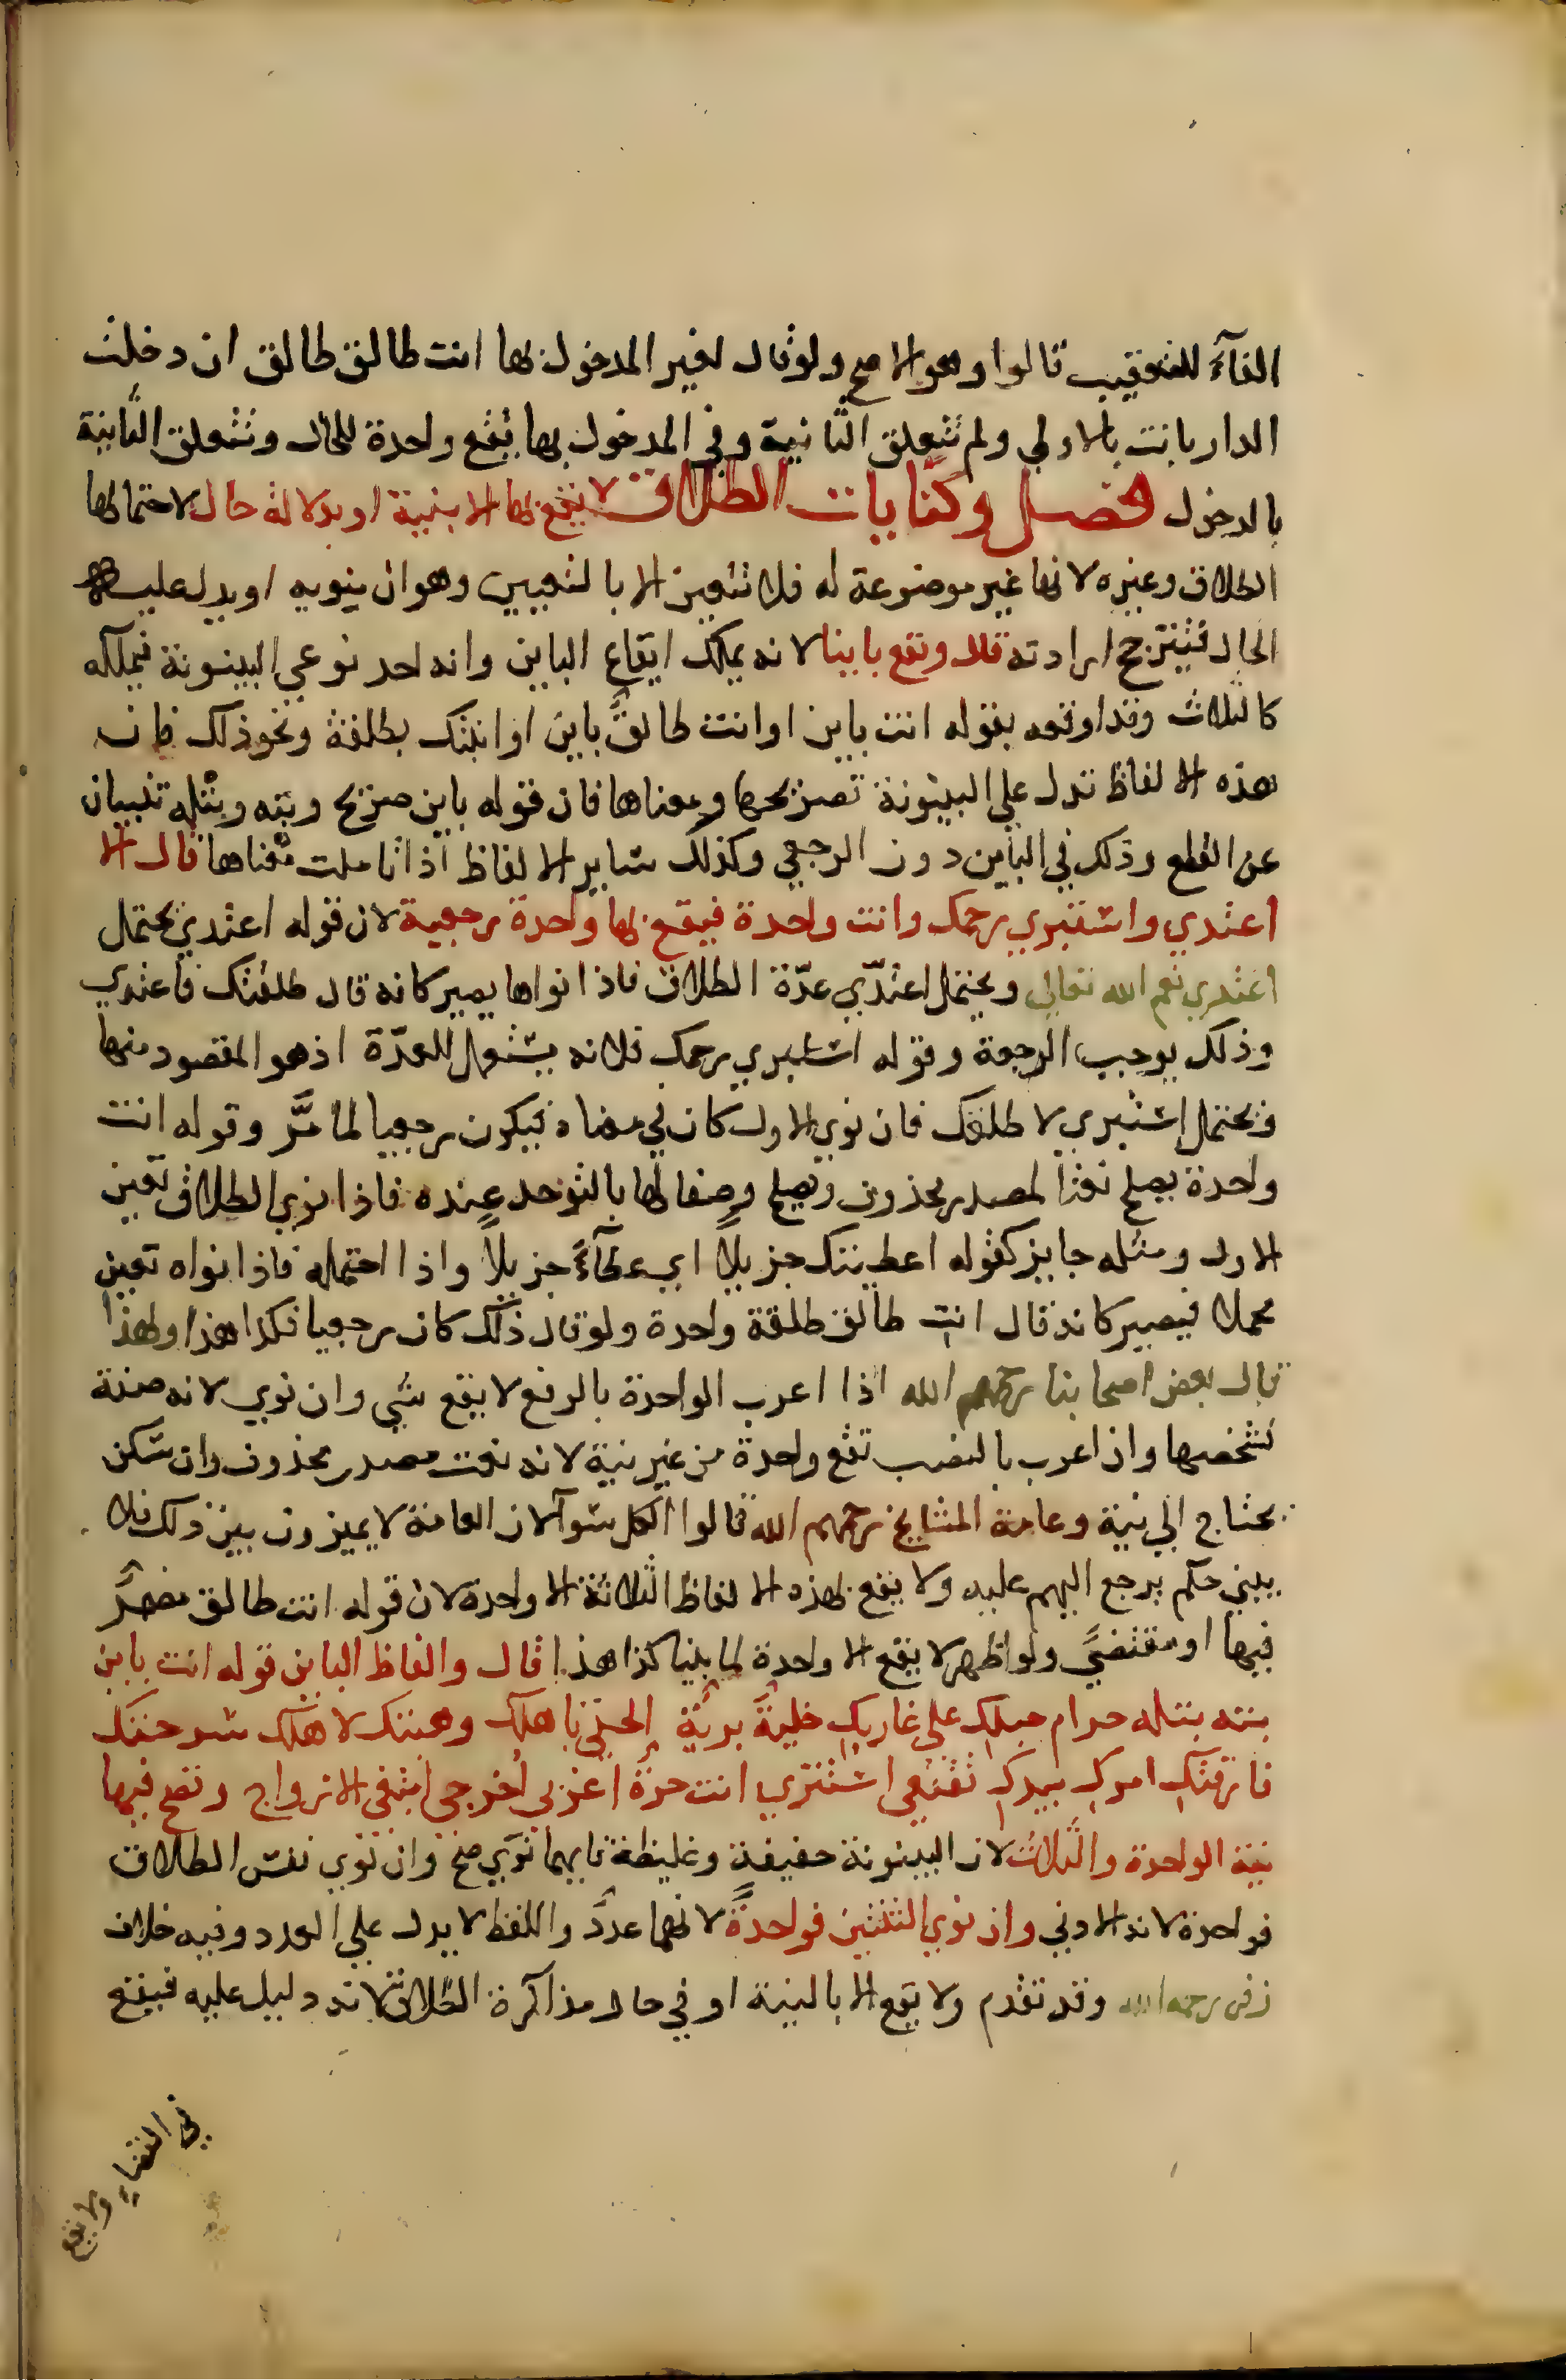 الفآءَ للتعقيب قالوا وهو الاصح ولو قال لغير المدخول بها انت طالق طالق ان دخلت
الدار بانت بالاولي ولم تتعلق الثانية وفي المدخول بها يقع واحدة للحال وتتعلق الثانية
بالدخول فصل وكنايات الطلاق لا يقع بها الا بنية او بدلالة حال لاحتمالها
الطلاق وغيره لانها غير موضوعة له فلا تتعين الا بالتعيين وهو ان ينويه او يدل عليه
الحال فتترجح ارادته قال وتقع باينا لانه يملك ايقاع الباين وانه احد نوعي البينونة فيملكه
كالثلاث وقد اوقعه بقوله انت باين او انت طالقٌ باين او ابنتك بطلقة ونحو ذلك فان
هذه الالفاظ تدل علي البينونة تصريحها ومعناها فان قوله باين صريح وبته وبتله تنبيان
عن القطع وذلك في الباين دون الرجعي وكذلك ساير الالفاظ اذا تاملت معناها قال الا
اعتدي واستبري رحمك وانت واحدة فيقع بها واحدة رجعية لان قوله اعتدي يحتمل
اعتدي نعم الله تعالي ويحتمل اعتدّي عدّة الطلاق فاذا نواها يصير كانه قال طلقتك فاعتدي
وذلك يوجب الرجعة وقوله استبري رحمك فلانه يستعمل للعدّة اذ هو المقصود منها
ويحتمل استبري لاطلقك فان نوي الاول كان في معناه فيكون رجعيا لما مرَّ وقوله انت
واحدة يصلح نعتا لمصدر محذوف ويصلح وصفا لها بالتوحد عنده فاذا نوي الطلاق تعين
الاول ومثله جايز كقوله اعطيتك جزيلًا اي عطآءً جزيلًا واذا احتمله فاذا نواه تعين
محملا فيصير كانه قال انت طالق طلقة واحدة ولو قال ذلك كان رجعيا فكذا هذا ولهذا
قال بعض اصحابنا رحمهم الله اذا اعرب الواحدة بالرفع لا يقع شي وان نوي لانه صفة
لشخصها وان اعرب بالنصب تقع واحدة من غير نية لانه نعت مصدر محذوف وان سكن
يحتاج الي نية وعامة المشايخ رحمهم الله قالوا الكل سوآء لان العامة لا يميزون بين ذلك فلا
يبني حكم يرجع اليهم عليه ولا يقع بهذه الالفاظ الثلاثة الا واحدة لان قوله انت طالق مضمرٌ
فيها او مقتضيً ولو اظهر لا يقع الا واحدة لما بينا كذا هذا قال والفاظ الباين قوله انت باين
بته بتله حرام حبلك علي غاربك خليةٌ بريّة الحقي باهلك وهبتك لاهلك سرحتك
فارقتك امرك بيدك تقنعي استتري انت حرّة اغربي اخرجي ابتغي الازواج وتصح فيها
نية الواحدة والثلاث لان البينونة خفيفة وغليظة فايهما نوي صح وان نوي نفس الطلاق
فواحدة لانه الادني وان نوي الثنتين فواحدةٌ لانهما عددٌ واللفظ لا يدل علي العدد وفيه خلاف
زفر رحمه الله وقد تقدم ولا يقع الا بالنية او في حال مذاكرة الطلاق لانه دليل عليه فيقع
في القضاءِ ولا يقع